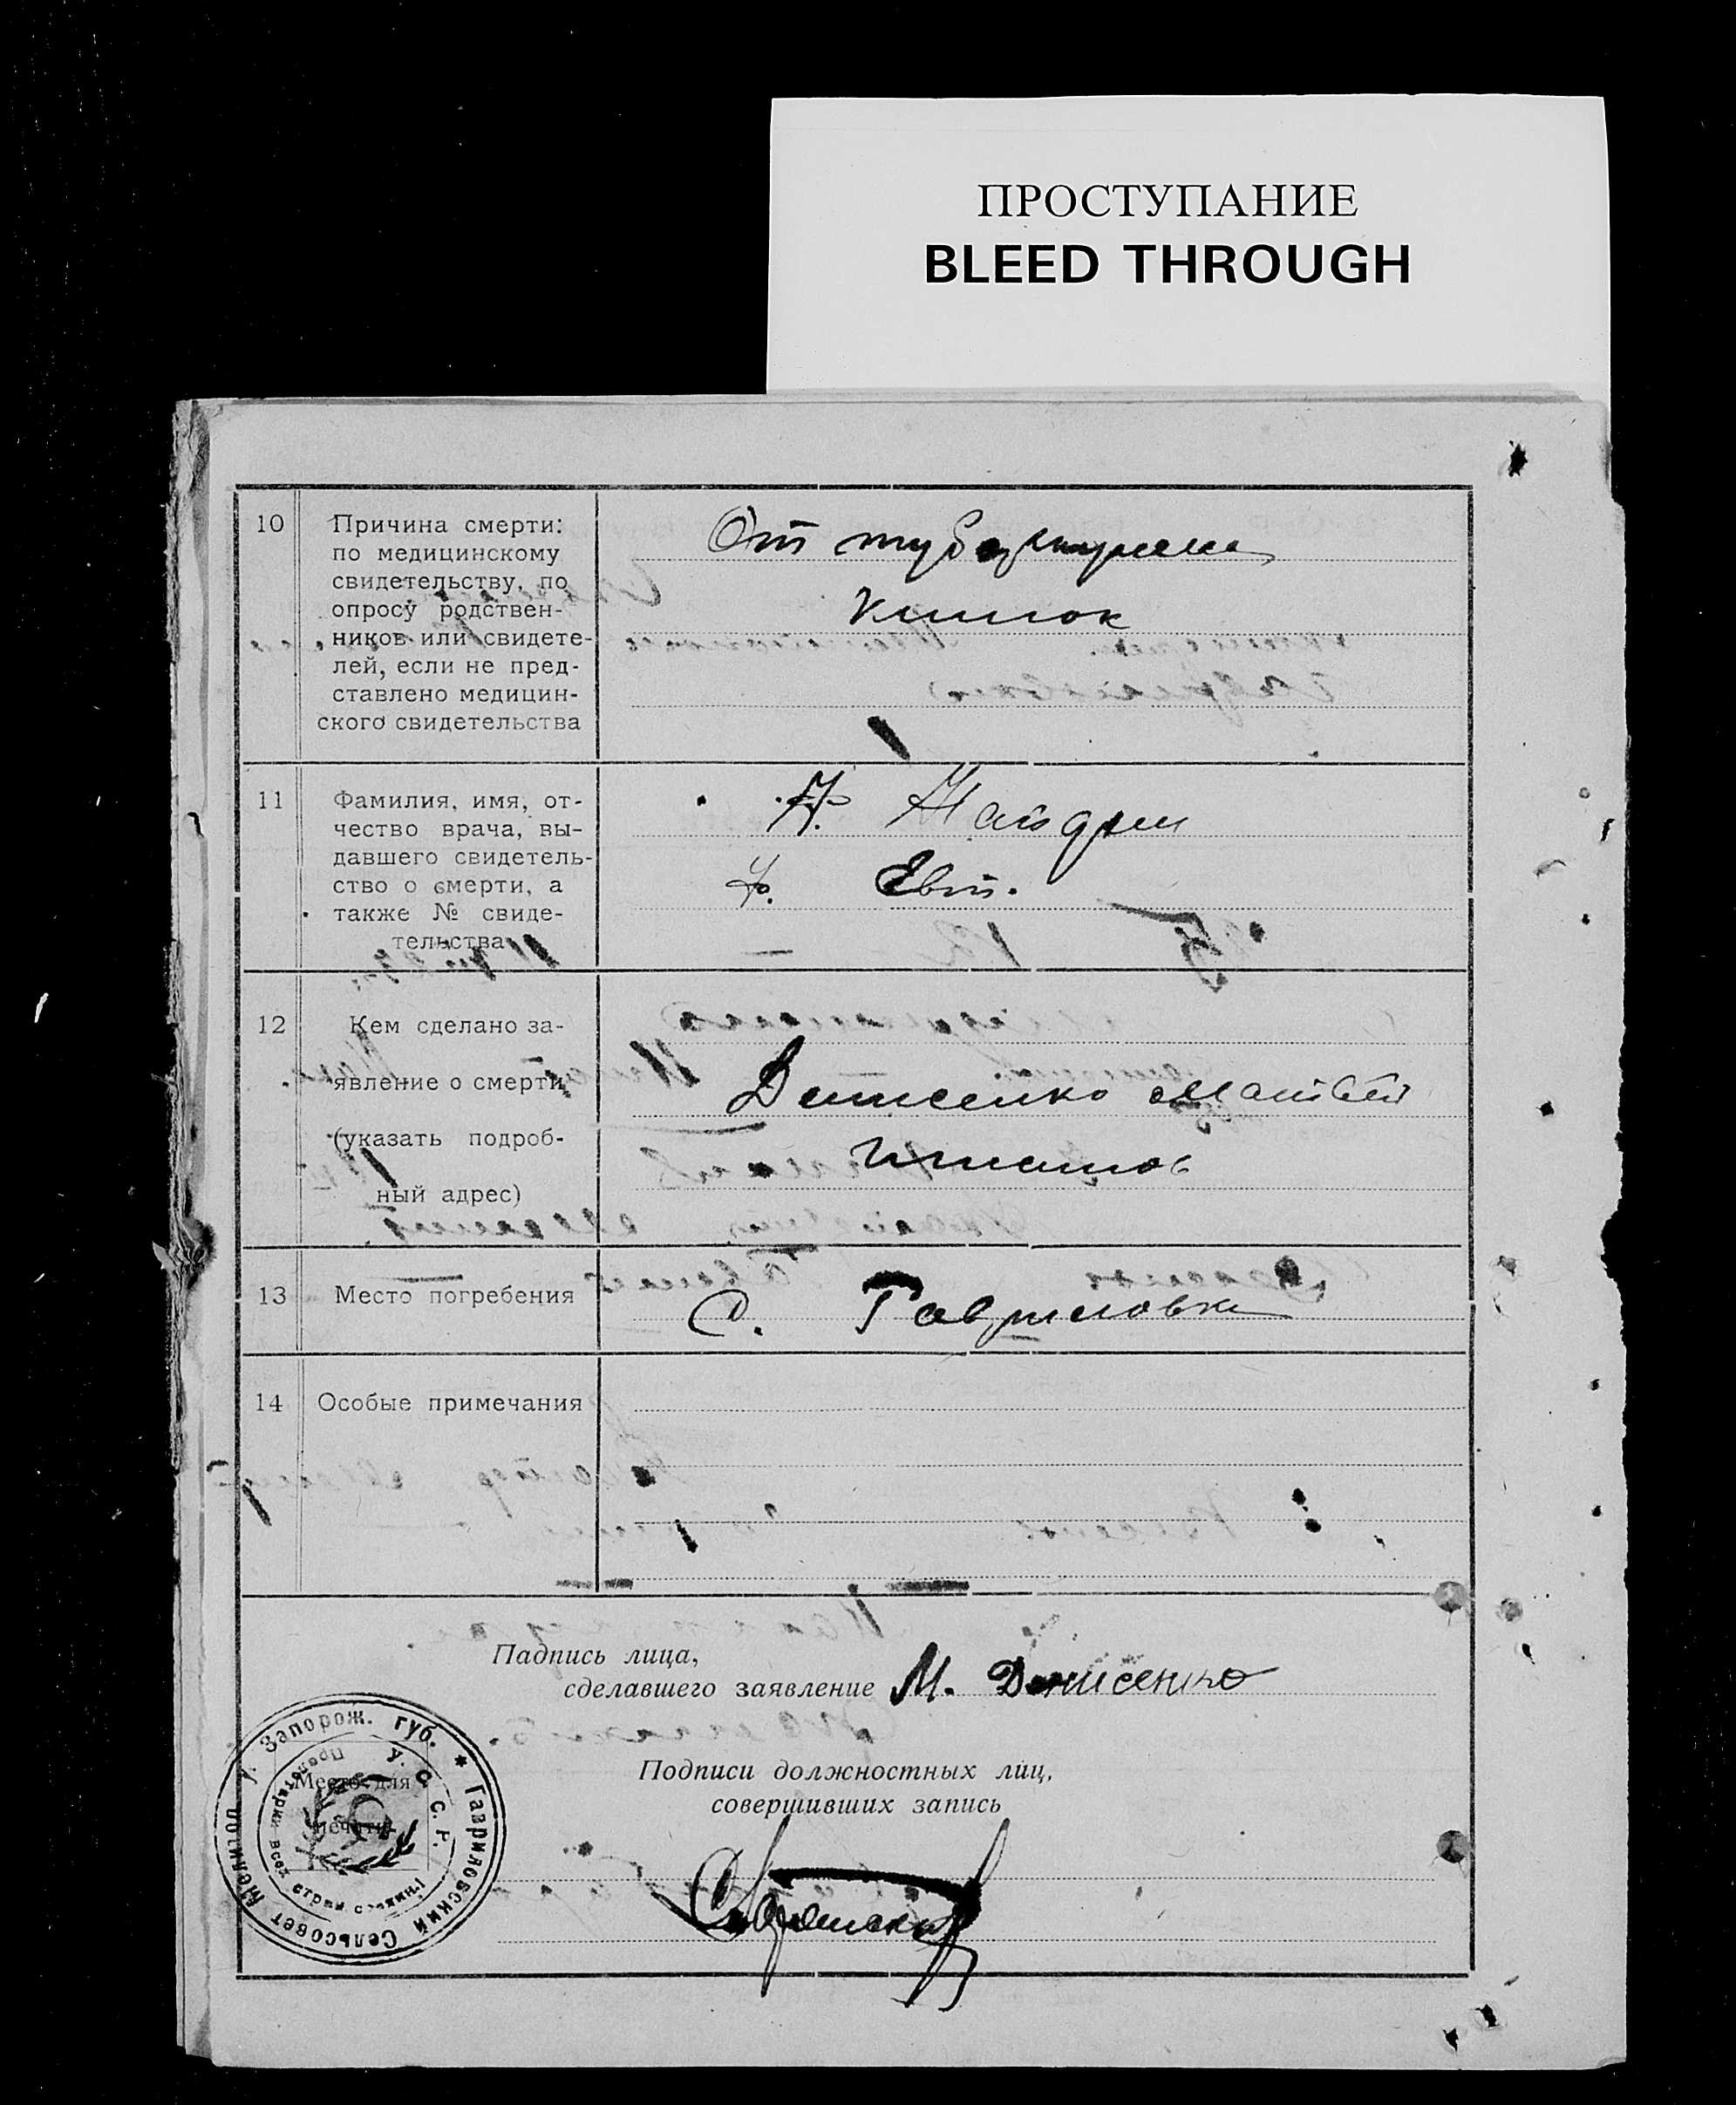 ПРОСТУПАНИЕ
BLEED THROUGH
10
Причина смерти:
по медицинскому
свидетельству, по
опросу родствен-
ников или свидете-
лей, если не пред-
ставлено медицин-
ского свидетельства
От туберкулеза
кишок
11
Фамилия, имя, от-
чество врача, вы-
давшего свидетель-
ство о смерти, а
также № свиде-
тельства
Евт.
12
Кем сделано за-
явление о смерти
(указать подроб-
ный адрес)
Денисенко Матвей
13
Место погребения
С. Гавриловка
14
Особые примечания
Падпись лица,
сделавшего заявление М. Денисенко
Подписи должностных лиц,
совершивших запись
Место для
печати
Запорож. губ. * Гавриловский Сельсовет Мелитоп. у.
У. С. С. Р. Пролетарии всех стран соедин.!